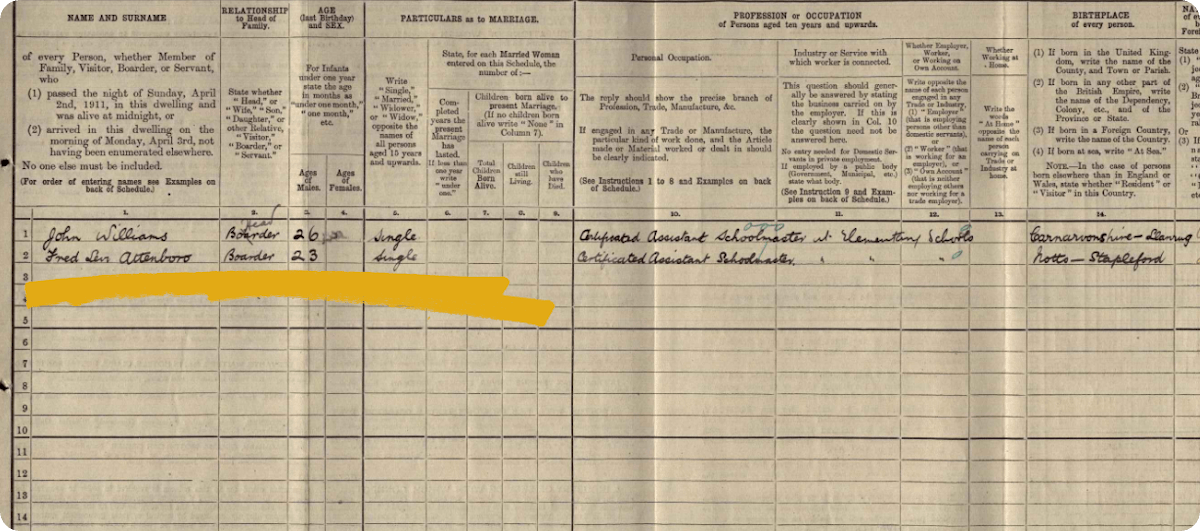 NAME AND SURNAME
of every Person, whether Member of
Family, Visitor, Boarder, or Servant,
who
(1) passed the night of Sunday, April
2nd, 1911, in this dwelling and
was alive at midnight, or
(2) arrived in this dwelling on the
morning of Monday, April 3rd, not
having been enumerated elsewhere.
No one else must be included.
(For order of entering names see Examples on
back of Schedule.)
RELATIONSHIP
to Head of
Family.
State whether
"Head," or
"Wife," "Son,"
"Daughter," or
other Relative,
"Visitor,"
"Boarder," or
"Servant."
AGE
(last Birthday)
and SEX.
For Infants
under one year
state the age
in months as
"under one month,"
"one month,"
etc.
Ages
of
Males.
Ages
of
Females.
PARTICULARS as to MARRIAGE.
Write
"Single,"
"Married,"
"Widower,"
or "Widow,"
opposite the
names of
all persons
aged 15 years
and upwards.
State, for each Married Woman
entered on this Schedule, the
number of:—
Com-
pleted
years the
present
Marriage
has
lasted.
If less than
one year
write
"under
one."
Children born alive to
present Marriage.
(If no children born
alive write "None" in
Column 7).
Total
Children
Born
Alive.
Children
still
Living.
Children
who
have
Died.
PROFESSION or OCCUPATION
of Persons aged ten years and upwards.
Personal Occupation.
The reply should show the precise branch of
Profession, Trade, Manufacture, &c.
If engaged in any Trade or Manufacture, the
particular kind of work done, and the Article
made or Material worked or dealt in should
be clearly indicated.
(See Instructions 1 to 8 and Examples on back
of Schedule.)
Industry or Service with
which worker is connected.
This question should gener-
ally be answered by stating
the business carried on by
the employer. If this is
clearly shown in Col. 10
the question need not be
answered here.
No entry needed for Domestic Ser-
vants in private employment.
If employed by a public body
(Government, Municipal, etc.)
state what body.
(See Instruction 9 and Exam-
ples on back of Schedule.)
Whether Employer,
Worker,
or Working on
Own Account.
Write opposite the
name of each person
engaged in any
Trade or Industry,
(1) "Employer"
(that is employing
persons other than
domestic servants),
or
(2) "Worker" (that
is working for an
employer), or
(3) "Own Account"
(that is neither
employing others
nor working for a
trade employer).
Whether
Working at
Home.
Write the
words
"At Home"
opposite the
name of each
person
carrying on
Trade or
Industry at
home.
BIRTHPLACE
of every person.
(1) If born in the United King-
dom, write the name of the
County, and Town or Parish.
(2) If born in any other part of
the British Empire, write
the name of the Dependency,
Colony, etc., and of the
Province or State.
(3) If born in a Foreign Country,
write the name of the Country.
(4) If born at sea, write "At Sea."
NOTE.—In the case of persons
born elsewhere than in England or
Wales, state whether "Resident" or
"Visitor" in this Country.
1. 2. 3. 4. 5. 6. 7. 8. 9. 10. 11. 12. 13. 14.
Head
1 John Williams Boarder 26 Single Certificated Assistant Schoolmaster in Elementary Schools Carnarvonshire – Llanrug
2 Fred Levi Attenboro Boarder 23 Single Certificated Assistant Schoolmaster. " " " Notts – Stapleford
3
4
5
6
7
8
9
10
11
12
13
14